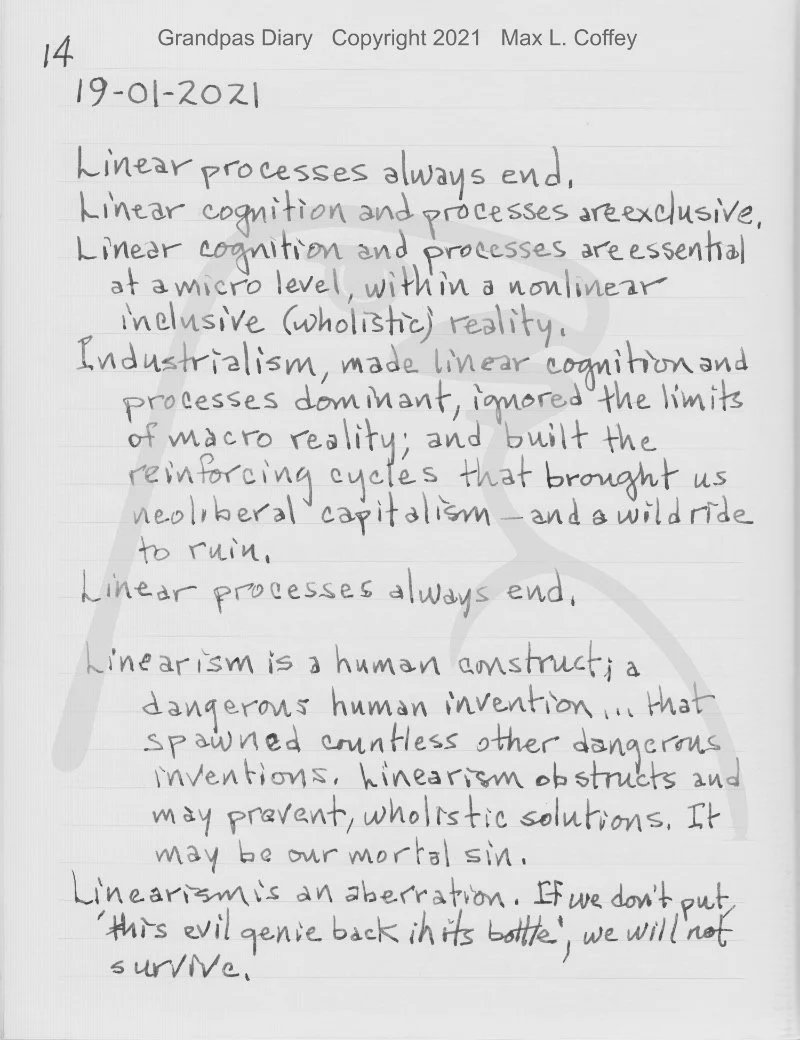 Grandpas Diary Copyright 2021 Max L. Coffey
14
19-01-2021
Linear processes always end.
Linear cognition and processes are exclusive.
Linear cognition and processes are essential
at a micro level, within a nonlinear
inclusive (wholistic) reality.
Industrialism, made linear cognition and
processes dominant, ignored the limits
of macro reality; and built the
reinforcing cycles that brought us
neoliberal capitalism – and a wild ride
to ruin.
Linear processes always end.
Linearism is a human construct; a
dangerous human invention... that
spawned countless other dangerous
inventions. Linearism obstructs and
may prevent, wholistic solutions. It
may be our mortal sin.
Linearism is an aberration. If we don't put
'this evil genie back in its bottle', we will not
survive.